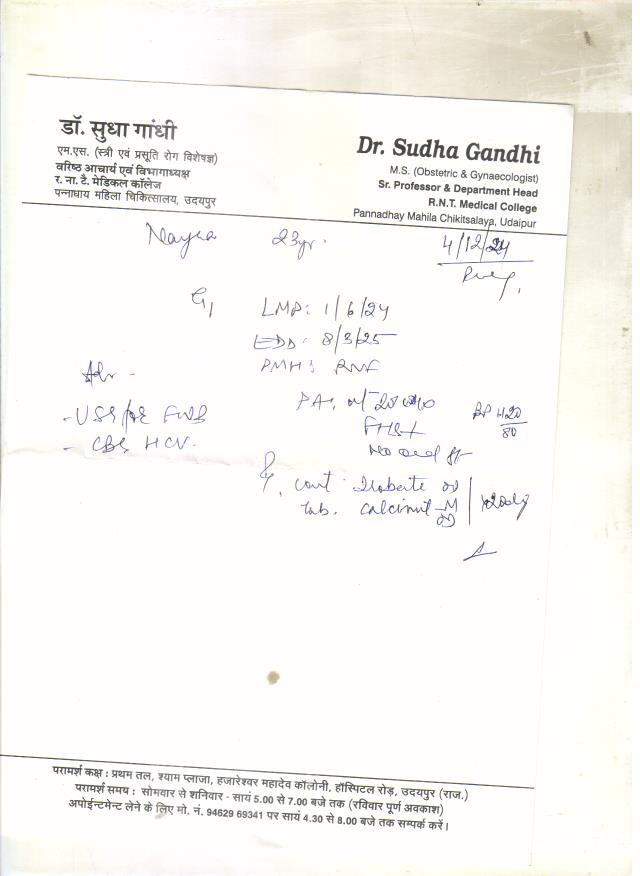 डॉ. सुधा गांधी
एम.एस. (स्त्री एवं प्रसूति रोग विशेषज्ञ)
वरिष्ठ आचार्य एवं विभागाध्यक्ष
र. ना. टै. मेडिकल कॉलेज
पन्नाधाय महिला चिकित्सालय, उदयपुर
Dr. Sudha Gandhi
M.S. (Obstetric & Gynaecologist)
Sr. Professor & Department Head
R.N.T. Medical College
Pannadhay Mahila Chikitsalaya, Udaipur
23yr.
4/12/24
G1
LMP: 1/6/24
EDD: 8/3/25
PMH:
Adv -
PA:
BP 120/80
- USG for FWB
FHS+
- CBC HCV.
Rx
cont
OD
Tab. Calcinut-M
OD
परामर्श कक्ष : प्रथम तल, श्याम प्लाजा, हजारेश्वर महादेव कॉलोनी, हॉस्पिटल रोड़, उदयपुर (राज.)
परामर्श समय : सोमवार से शनिवार - सायं 5.00 से 7.00 बजे तक (रविवार पूर्ण अवकाश)
अपोईन्टमेन्ट लेने के लिए मो. नं. 94629 69341 पर सायं 4.30 से 8.00 बजे तक सम्पर्क करें।